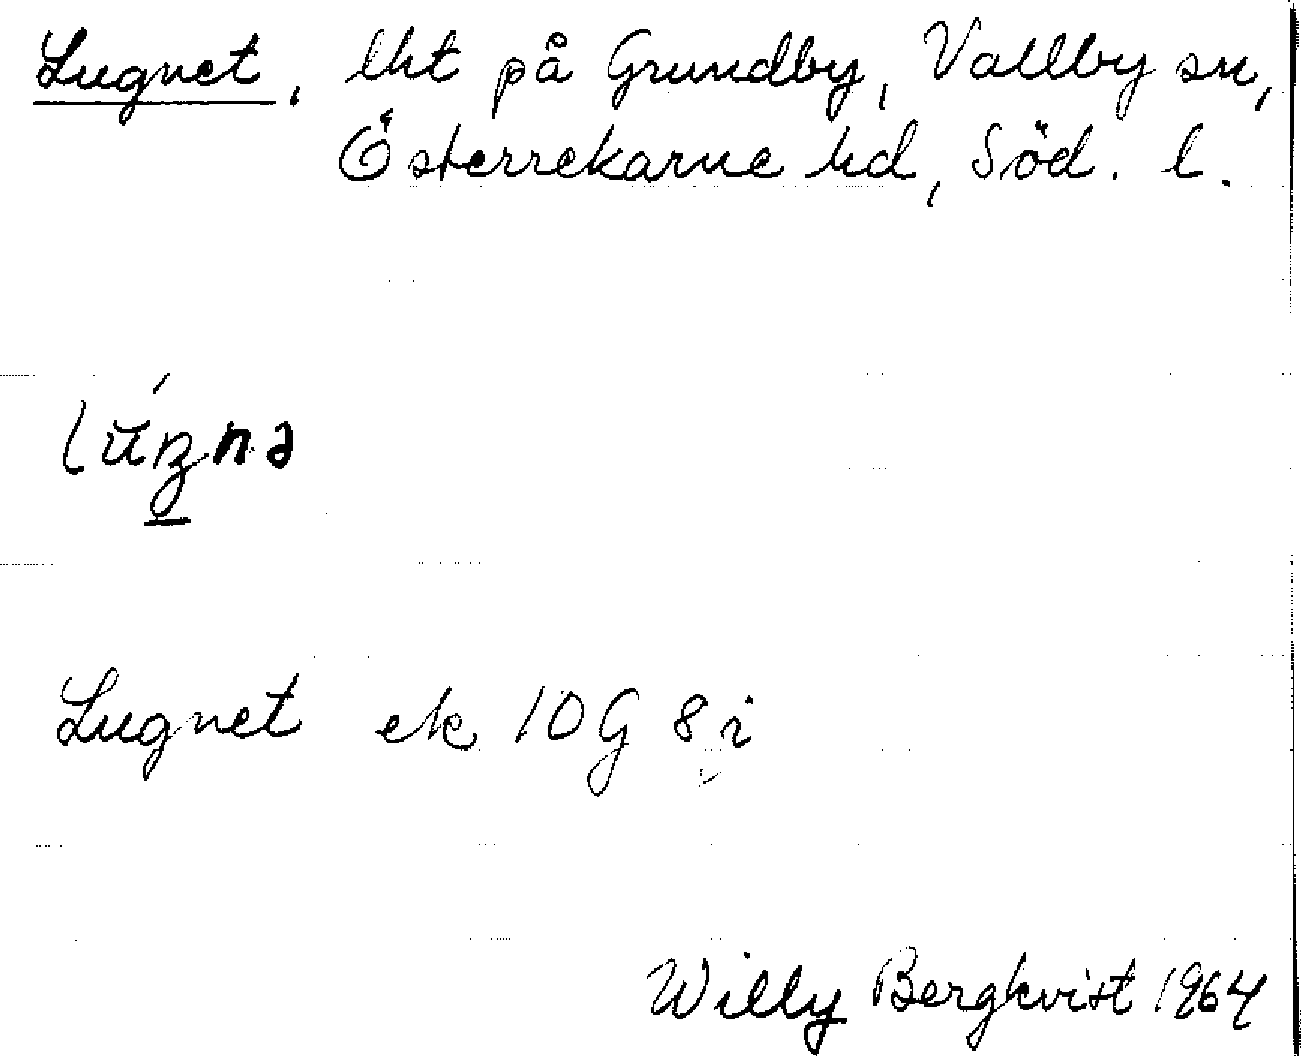 Lugnet, lht på Grundby, Vallby sn,
Österrekarne hd, Söd. l.
Lugnet ek 10G 8i
Willy Bergkvist 1964